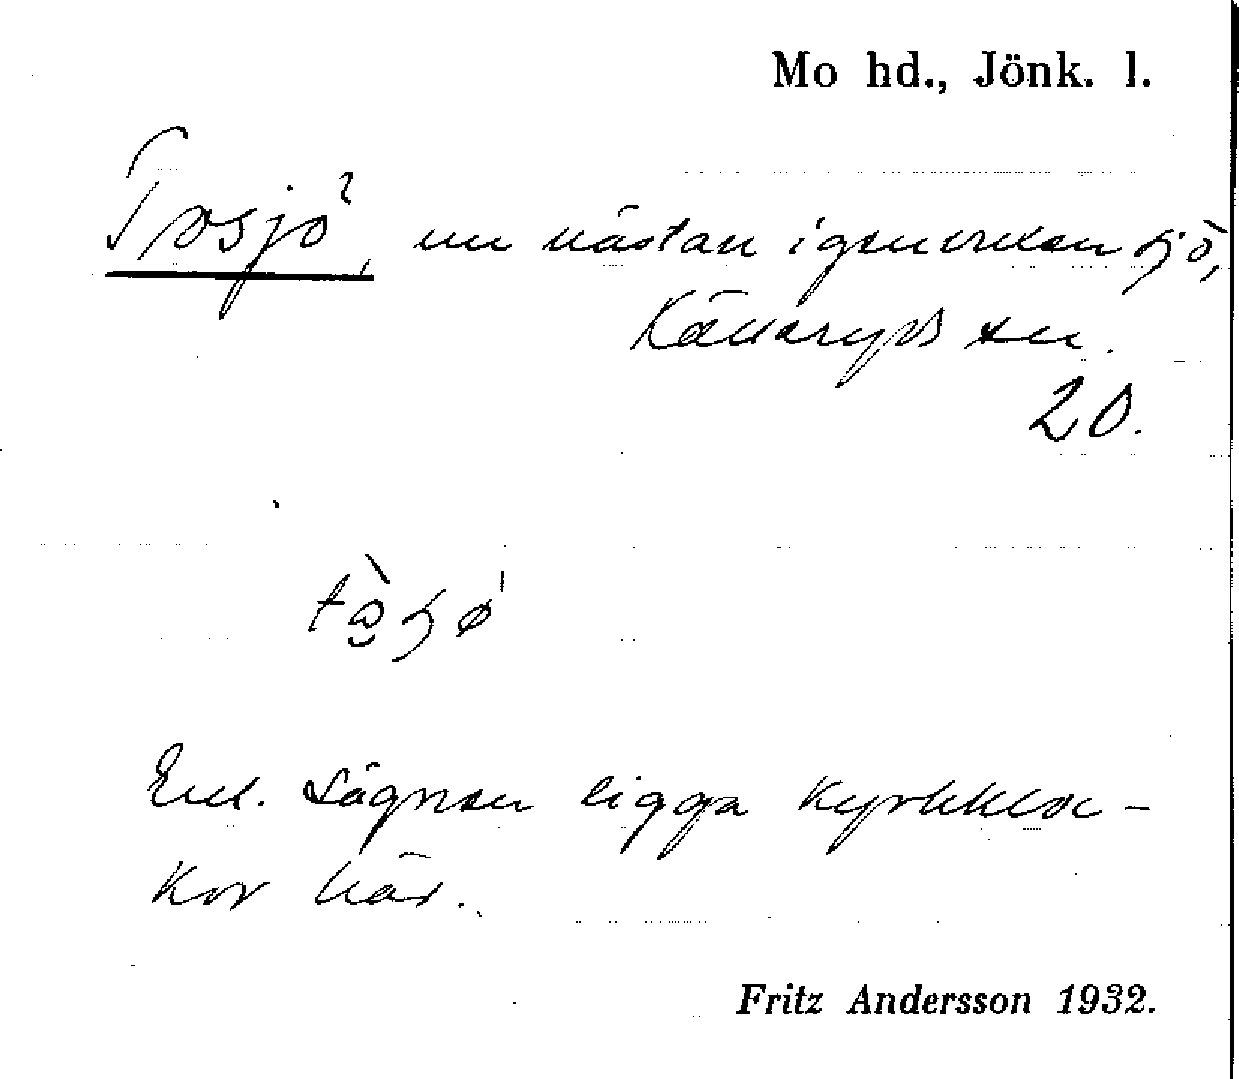 Mo hd., Jönk. l.
Tosjö, nu nästan igenvuxen sjö,
Källeryds sn.
20.
Enl. sägnen ligga kyrkkloc-
kor här.
Fritz Andersson 1932.